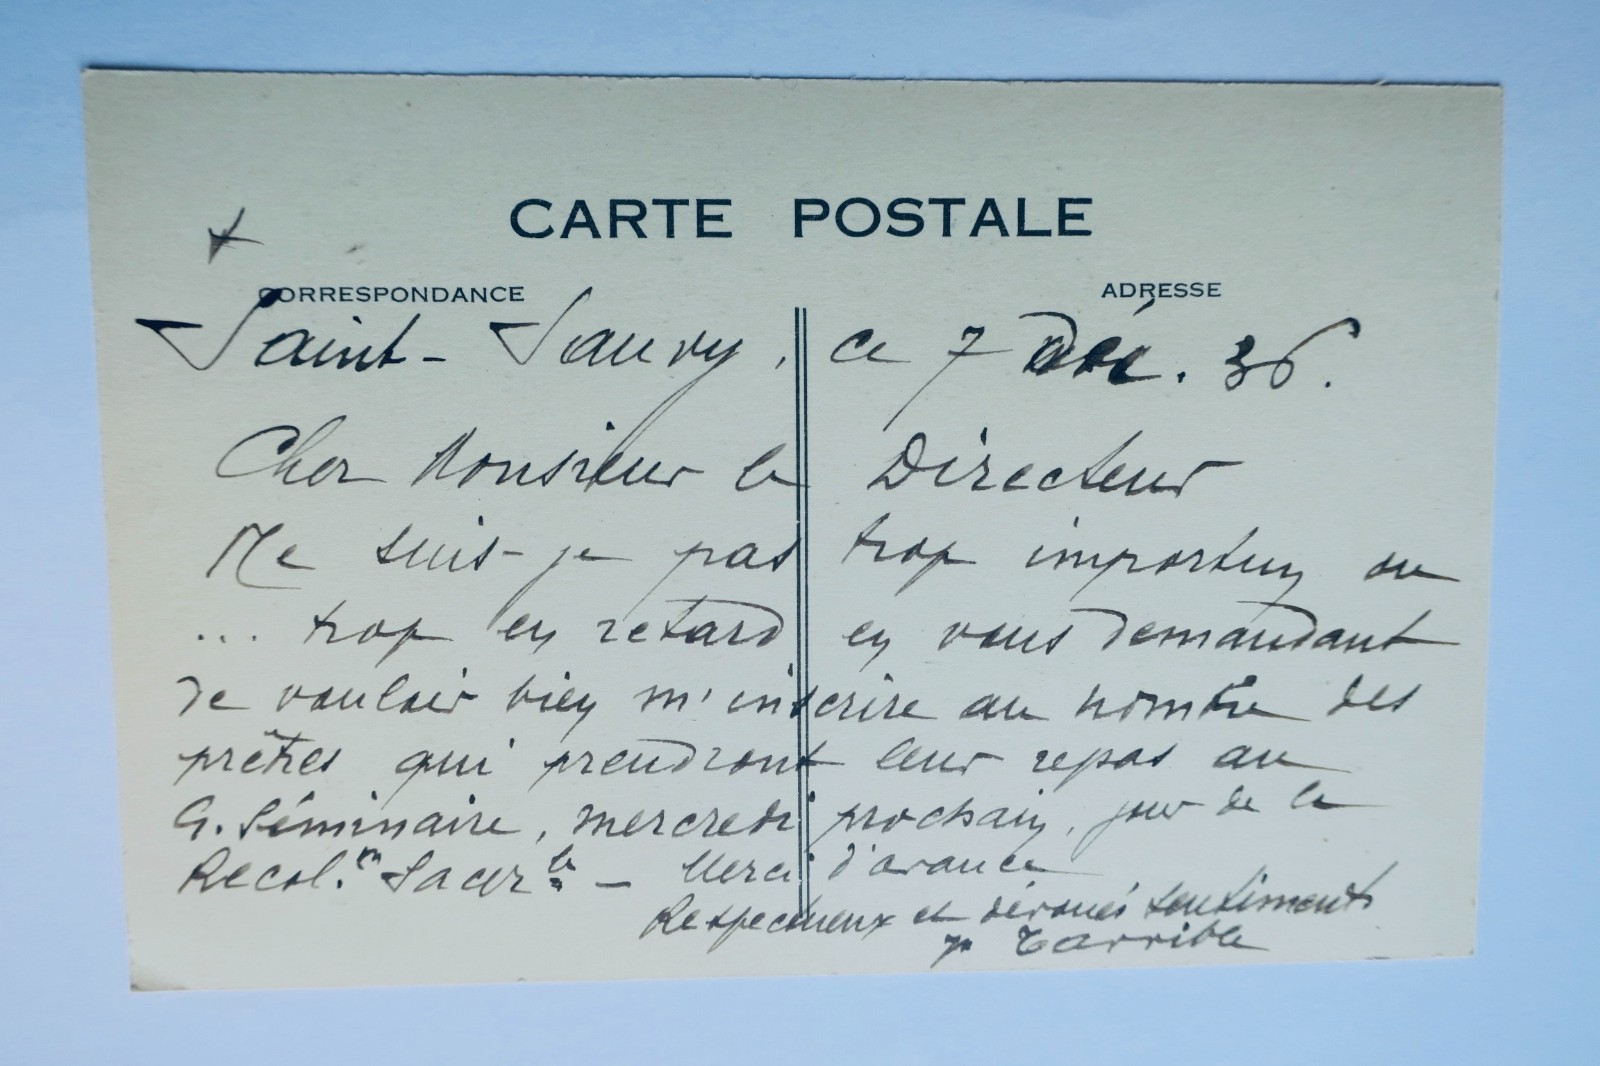 CARTE POSTALE
CORRESPONDANCE
ADRESSE
Saint-Sauvy, ce 7 Déc. 36.
Cher Monsieur le Directeur
Ne suis-je pas trop importun ou
... trop en retard en vous demandant
de vouloir bien m'inscrire au nombre des
prêtres qui prendront leur repas au
G. Séminaire, mercredi prochain, jour de la
Recol.on Sacer.le - Merci d'avance
Respectueux et dévoués sentiments
Tarrible